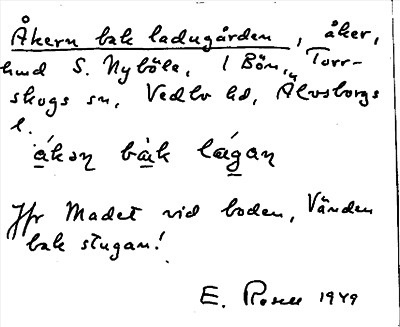 Åkern bak ladugården, åker,
hmd S. Nyböle, 1 Bön, Torr-
skogs sn, Vedbo hd, Älvsborgs
l.
ákən bàk lágan
Jfr Madet vid boden, Vänden
bak stugan!
E. Rosell 1949